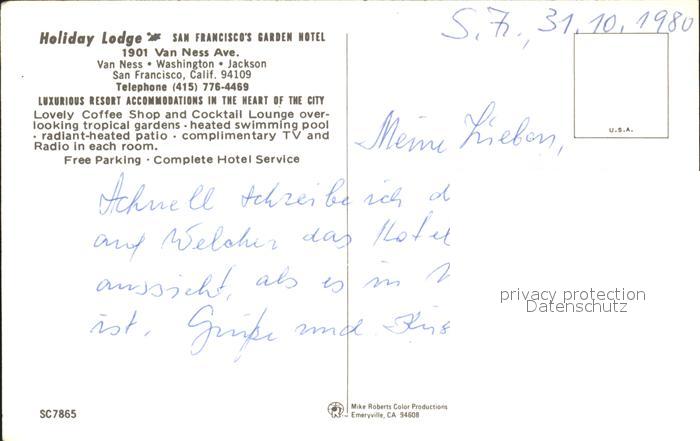 S.F., 31.10.1980
Holiday Lodge SAN FRANCISCO'S GARDEN HOTEL
1901 Van Ness Ave.
Van Ness • Washington • Jackson
San Francisco, Calif. 94109
Telephone (415) 776-4469
LUXURIOUS RESORT ACCOMMODATIONS IN THE HEART OF THE CITY
Lovely Coffee Shop and Cocktail Lounge over-
looking tropical gardens · heated swimming pool
· radiant-heated patio · complimentary TV and
Radio in each room.
Free Parking · Complete Hotel Service
U.S.A.
Meine Lieben,
Schnell schreibe ich d
auf Welcher das Hotel
aussieht, als es in
ist. Grüße und Küs
privacy protection
Datenschutz
SC7865
Mike Roberts Color Productions
Emeryville, CA 94608